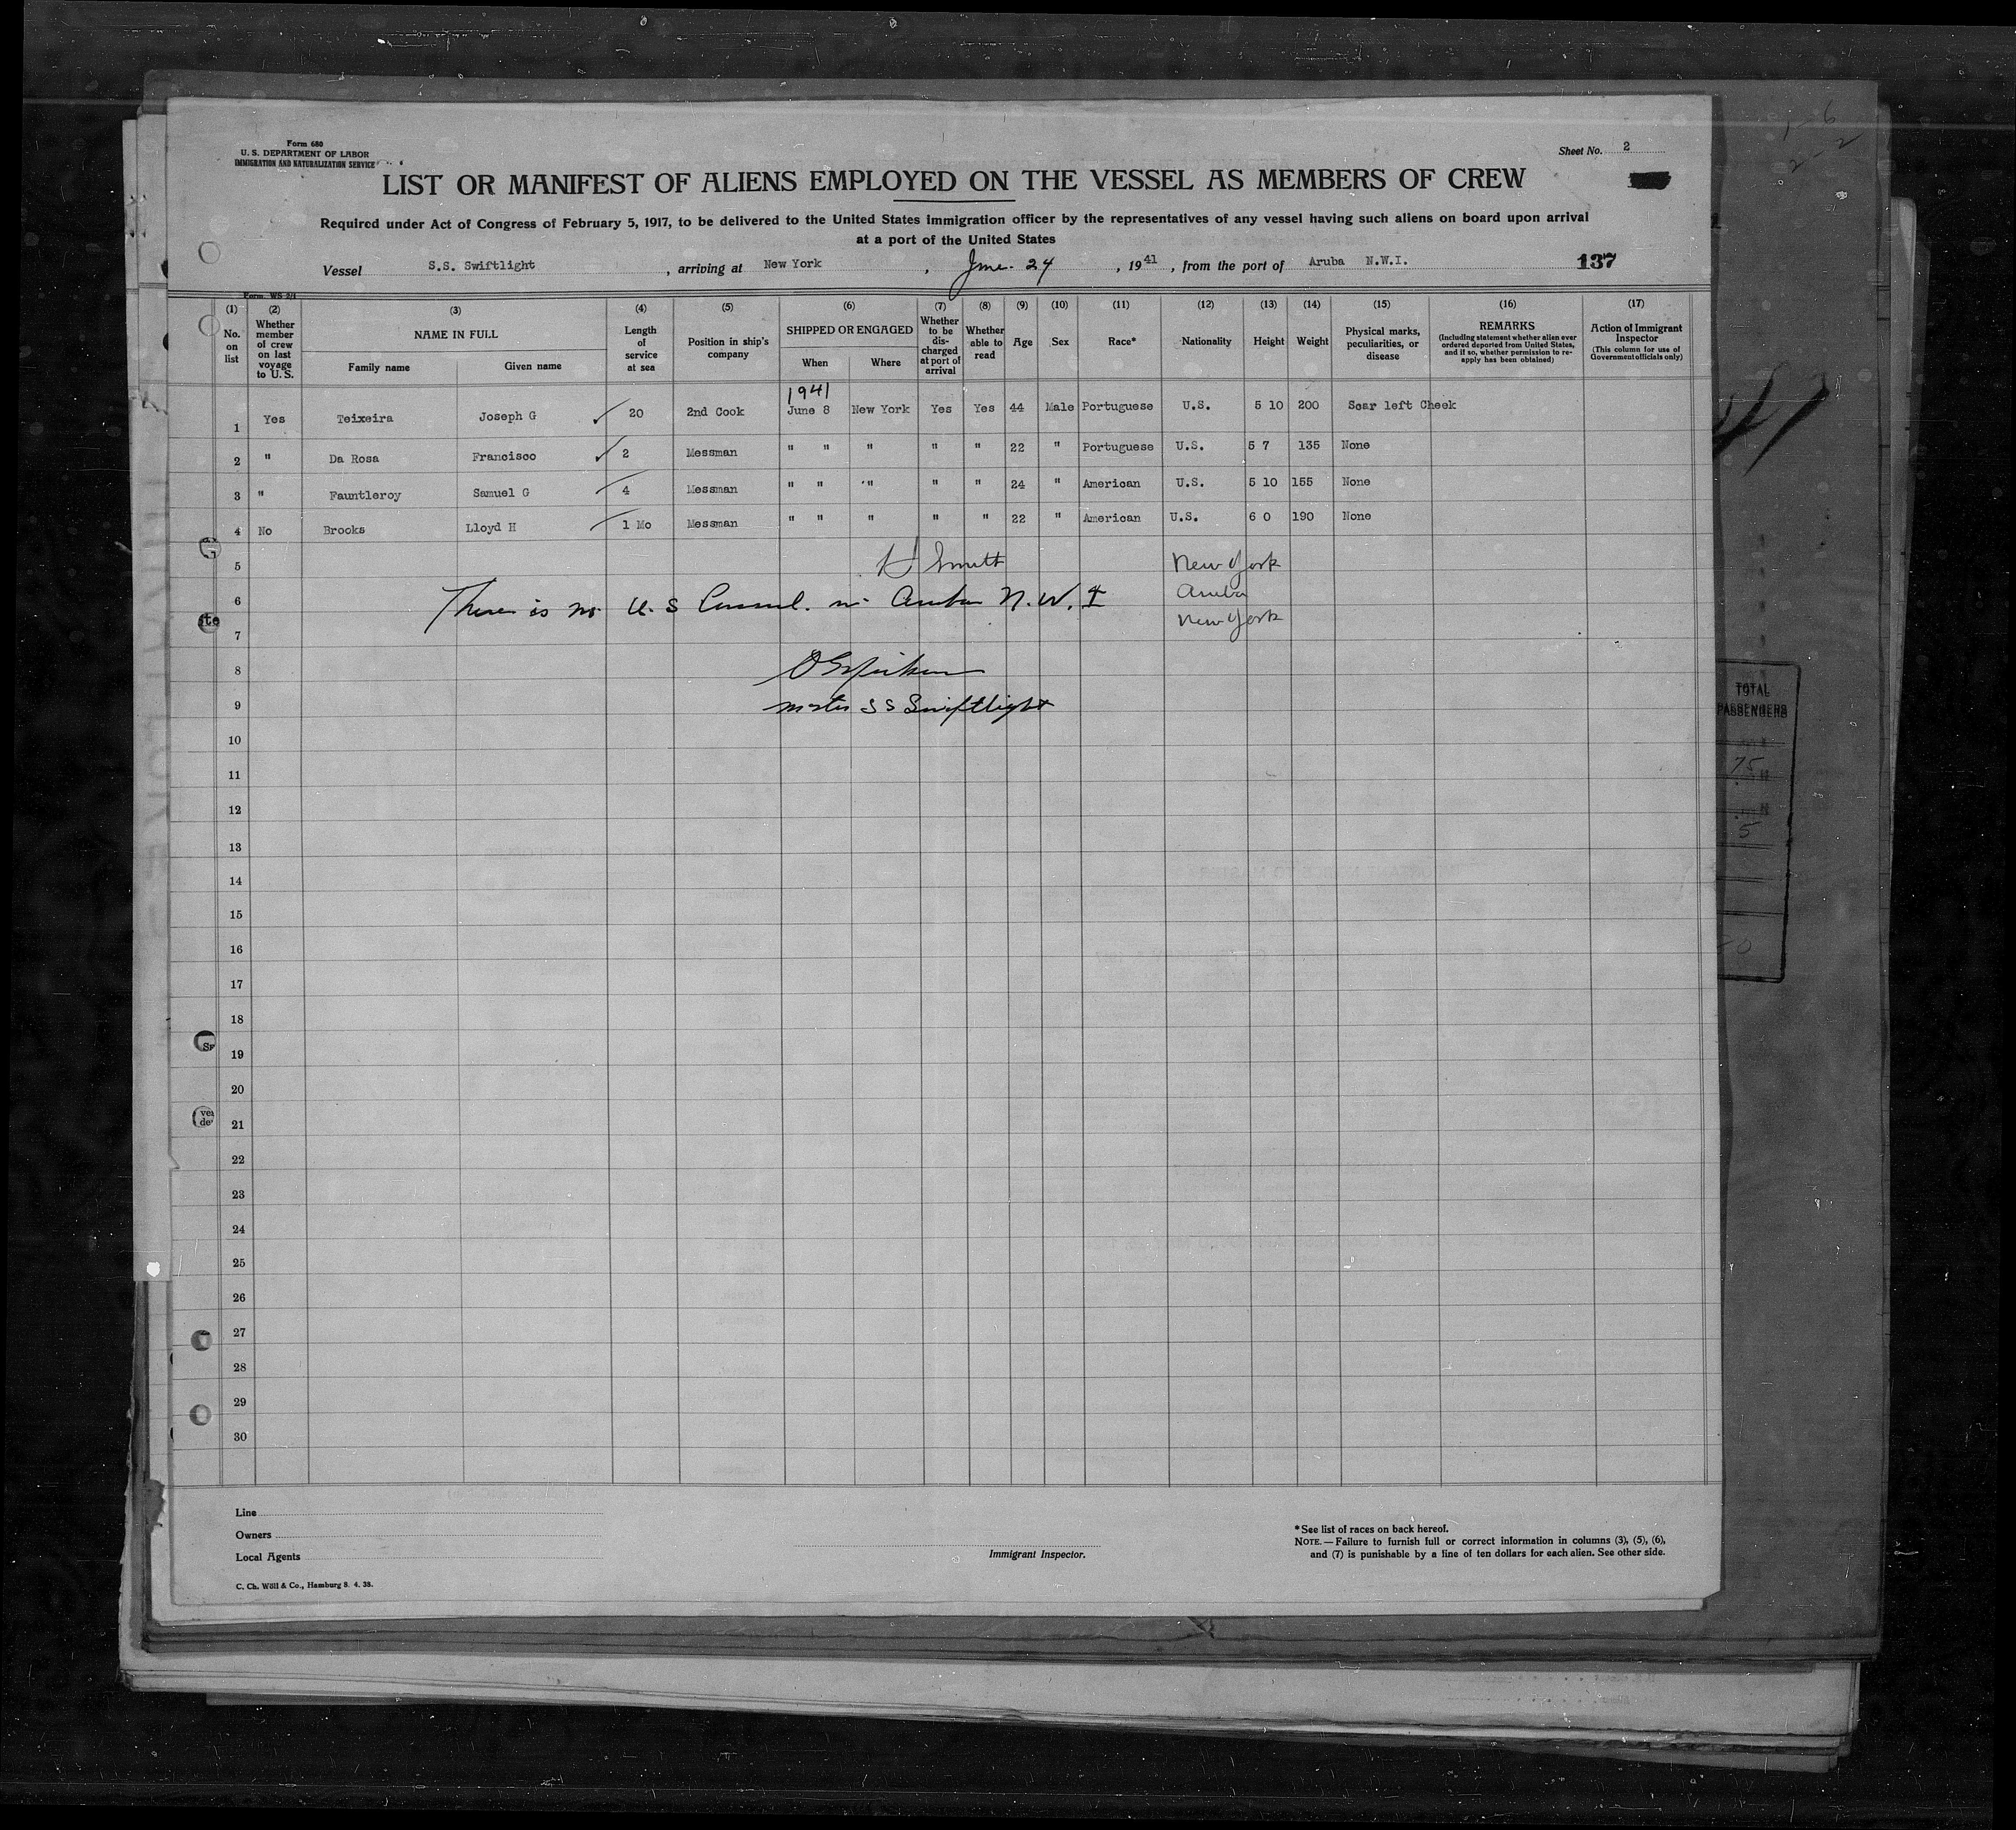 Form 680
U. S. DEPARTMENT OF LABOR
IMMIGRATION AND NATURALIZATION SERVICE
Sheet No. 2
LIST OR MANIFEST OF ALIENS EMPLOYED ON THE VESSEL AS MEMBERS OF CREW
Required under Act of Congress of February 5, 1917, to be delivered to the United States immigration officer by the representatives of any vessel having such aliens on board upon arrival
at a port of the United States
Vessel S.S. Swiftlight, arriving at New York, June 24, 1941, from the port of Aruba N.W.I. 137
Form WS-2/1
(1) (2) (3) (4) (5) (6) (7) (8) (9) (10) (11) (12) (13) (14) (15) (16) (17)
No. on list
Whether member of crew on last voyage to U. S.
NAME IN FULL
Family name
Given name
Length of service at sea
Position in ship's company
SHIPPED OR ENGAGED
When
Where
Whether to be discharged at port of arrival
Whether able to read
Age
Sex
Race*
Nationality
Height
Weight
Physical marks, peculiarities, or disease
REMARKS
(Including statement whether alien ever ordered deported from United States, and if so, whether permission to re-apply has been obtained)
Action of Immigrant Inspector
(This column for use of Government officials only)
1941
1 Yes Teixeira Joseph G 20 2nd Cook June 8 New York Yes Yes 44 Male Portuguese U.S. 5 10 200 Scar left Cheek
2 " Da Rosa Francisco 2 Messman " " " " " 22 " Portuguese U.S. 5 7 135 None
3 " Fauntleroy Samuel G 4 Messman " " " " " 24 " American U.S. 5 10 155 None
4 No Brooks Lloyd H 1 Mo Messman " " " " " 22 " American U.S. 6 0 190 None
5 H Smith New York
6 There is no U.S Consul in Aruba N.W.I Aruba
7 New York
8
9 Master SS Swiftlight
10
11
12
13
14
15
16
17
18
19
20
21
22
23
24
25
26
27
28
29
30
Line
Owners
Local Agents
Immigrant Inspector.
*See list of races on back hereof.
NOTE.—Failure to furnish full or correct information in columns (3), (5), (6),
and (7) is punishable by a fine of ten dollars for each alien. See other side.
C. Ch. Wöll & Co., Hamburg 8. 4. 38.
TOTAL
PASSENGERS
75
5